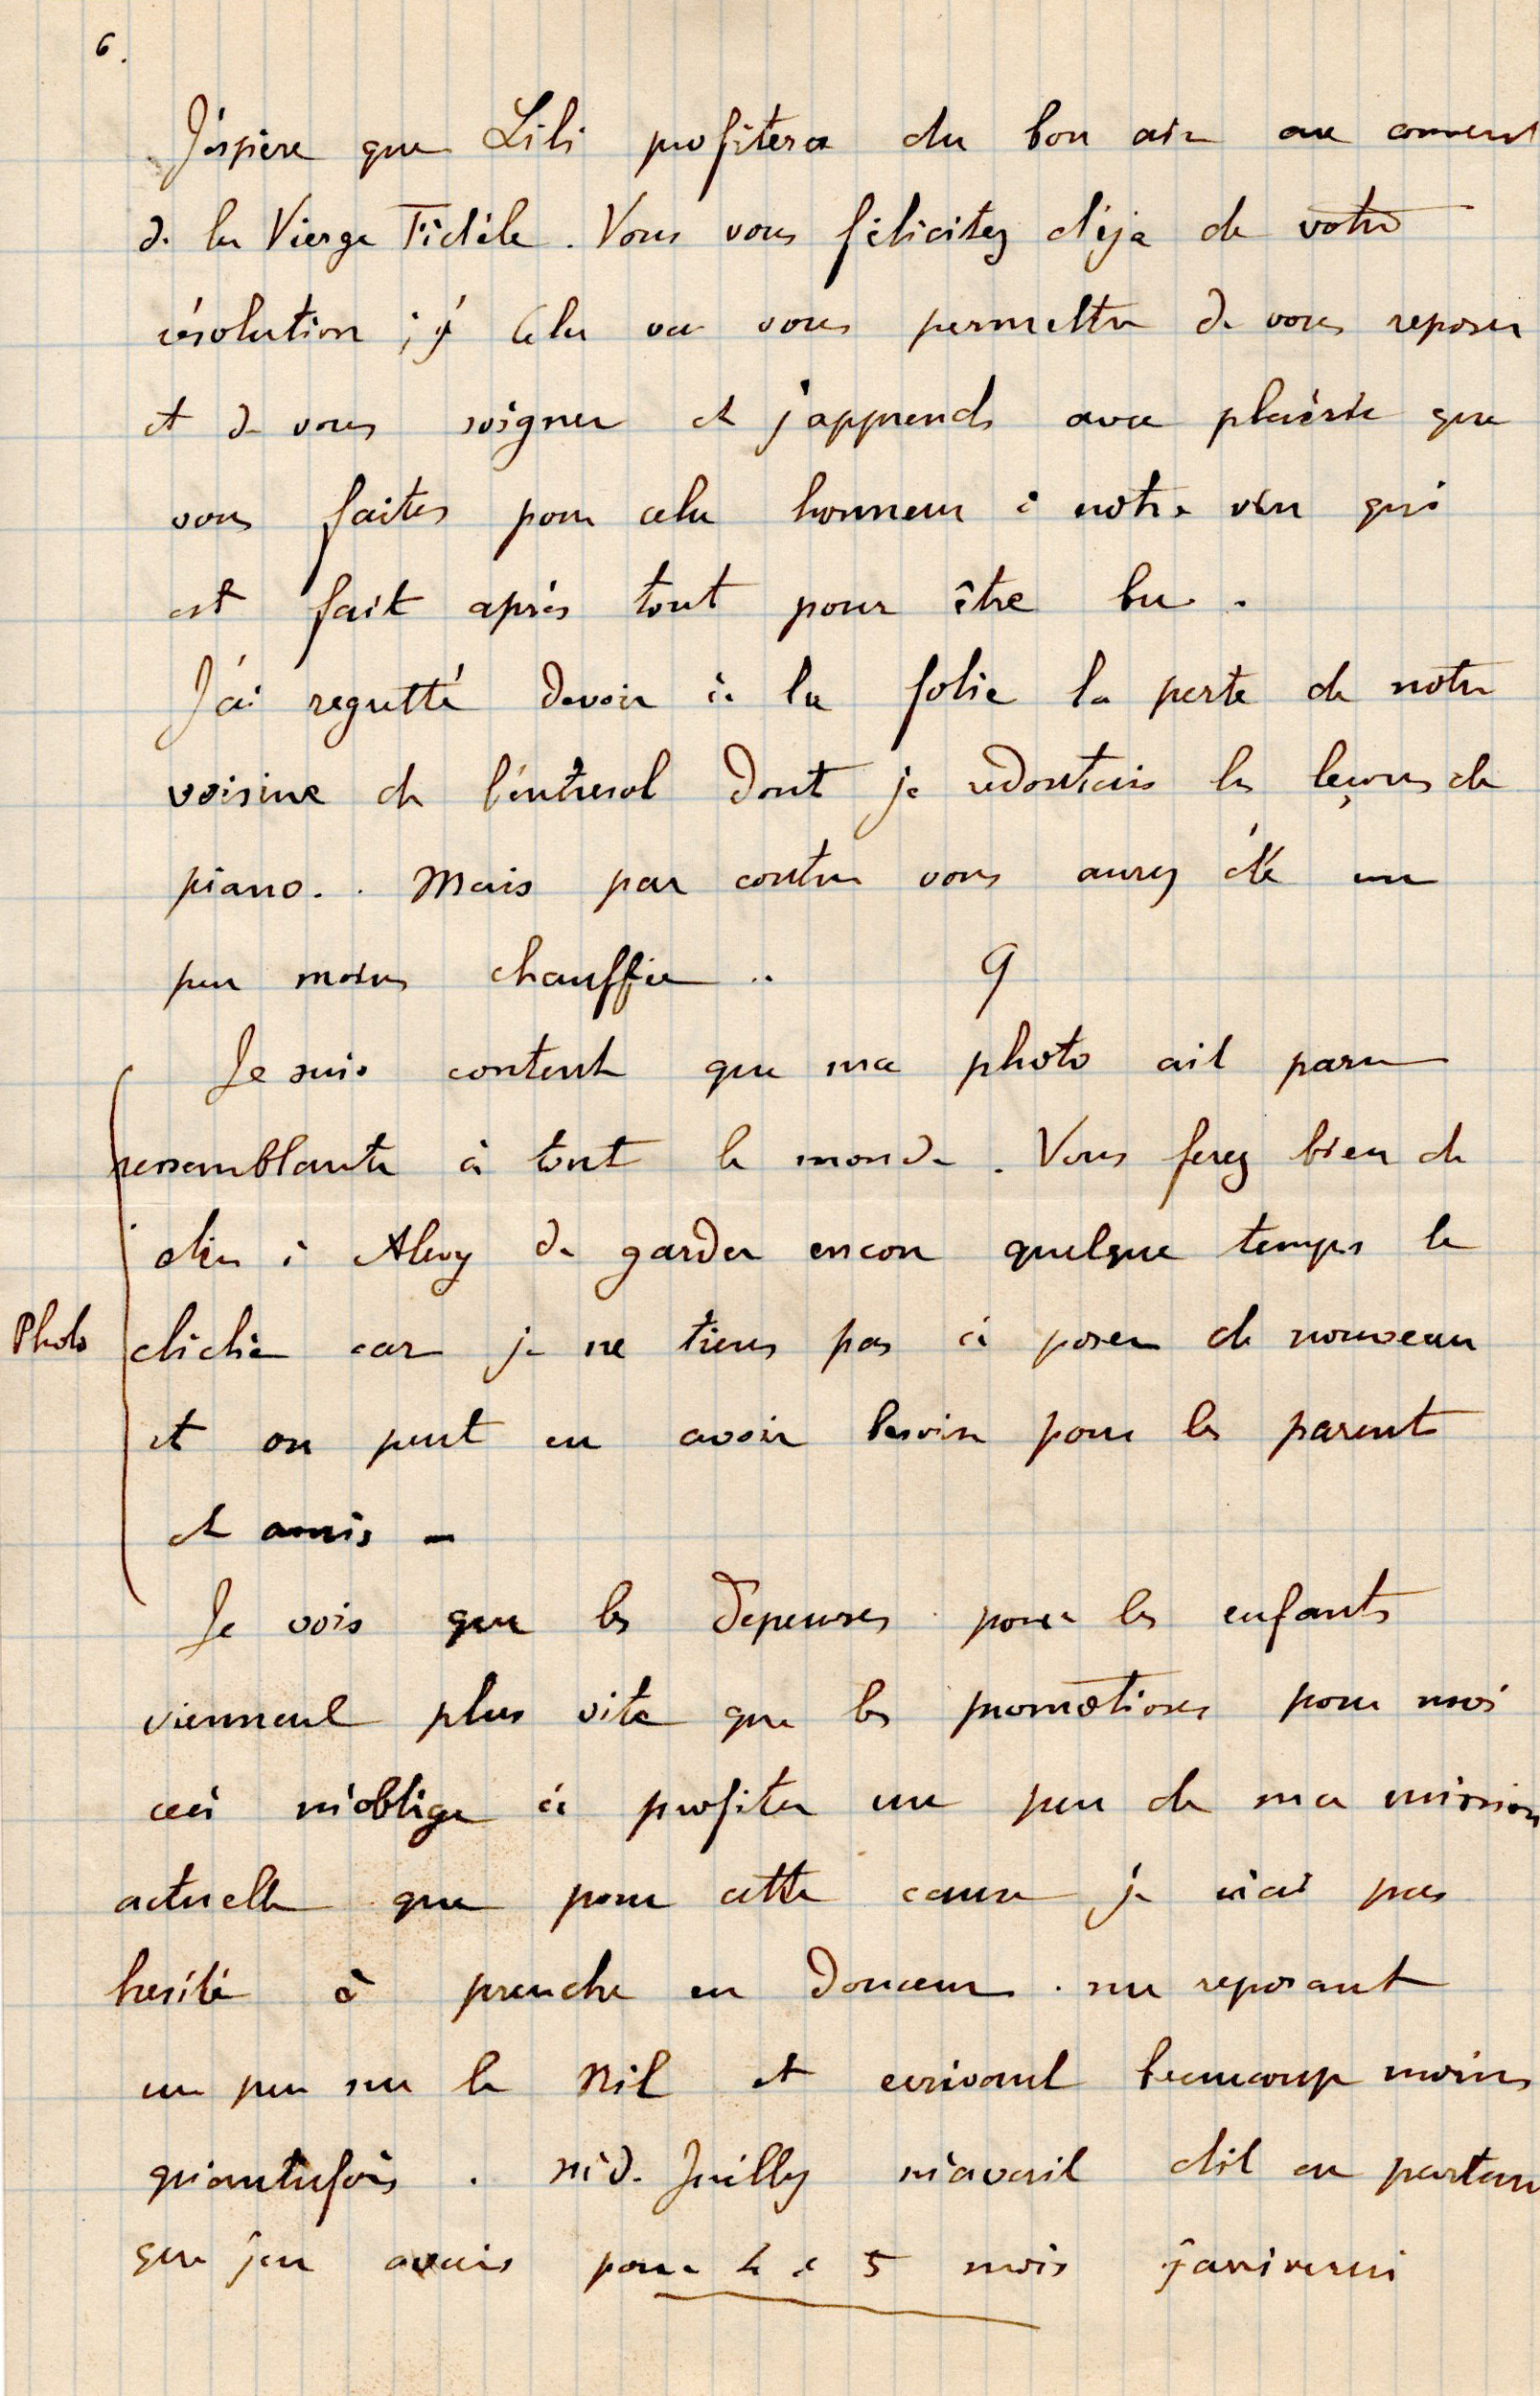 6.
J'éspère que Lili profitera du bon air au couvent
de la Vierge Fidèle. Vous vous félicitez déja de votre
résolution ; Cela va vous permettre de vous reposer
et de vous soigner et j'apprends avec plaisir que
vous faites pour cela honneur à notre vin qui
est fait après tout pour être bu.
J'ai regretté devoir à la folie la perte de notre
voisine de l'entresol dont je redoutais les leçons de
piano.. Mais par contre vous aurez été un
peu moins chauffée .. 9
Je suis content que ma photo ait paru
ressemblante à tout le monde. Vous ferez bien de
dire à de garder encore quelque temps le
Photo
cliché car je ne tiens pas à poser de nouveau
et on peut en avoir besoin pour les parents
et amis –
Je vois que les depenses pour les enfants
viennent plus vite que les promotions pour moi
ceci m'oblige à profiter un peu de ma mission
actuelle que pour cette cause je n'ai pas
hesité à prendre en douceur. me reposant
un peu sur le Nil et ecrivant beaucoup moins
qu'autrefois. Mr de Juilly m'avait dit en partant
que j'en avais pour 4 à 5 mois j'arriverai